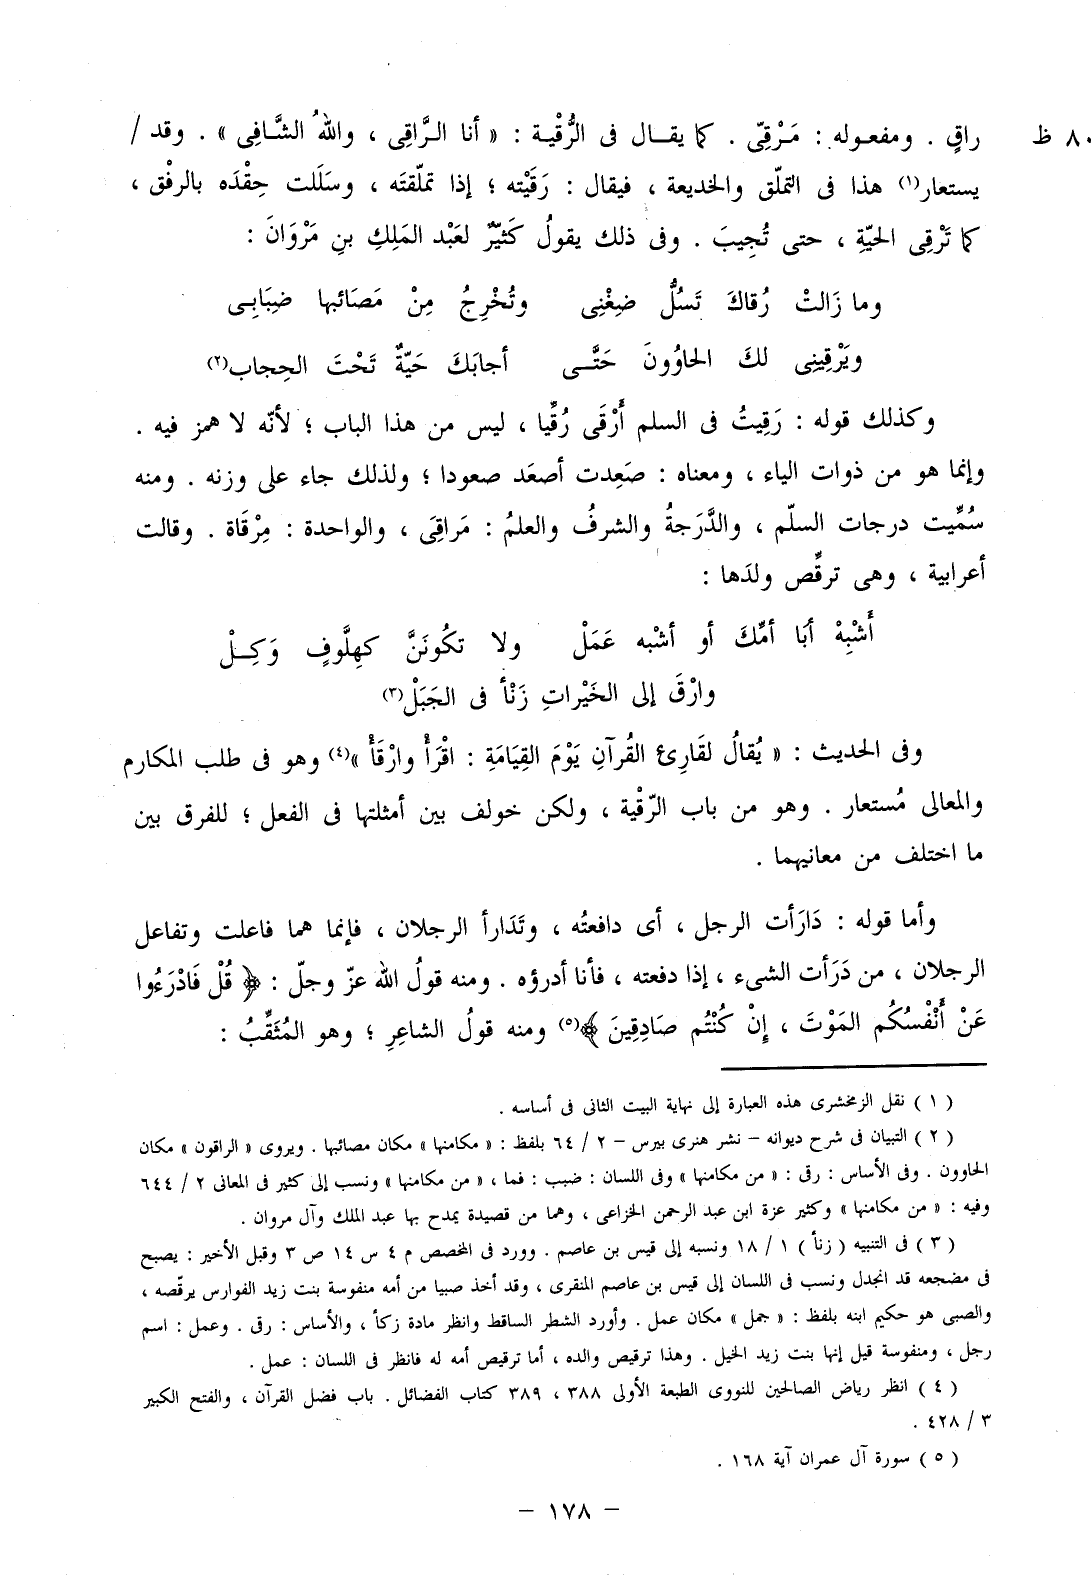 راقٍ . ومفعوله : مَرْقِىّ . كما يقال فى الرُّقْية : « أنا الرَّاقِى ، واللهُ الشَّافِى » . وقد / ٨٠ ظ
يستعار(١) هذا فى التملّق والخديعة ، فيقال : رَقَيْته ؛ إذا تملّقتَه ، وسَلَلت حِقْدَه بالرفْق ،
كما تَرْقِى الحيّةِ ، حتى تُجِيبَ . وفى ذلك يقولُ كَثيّرٌ لعَبْد المَلِكِ بنِ مَرْوَانَ :
وما زَالتْ رُقاكَ تَسُلُّ ضِغْنِى وتُخْرِجُ مِنْ مَصَائبها ضِبَابِى
ويَرْقِينِى لكَ الحاوُونَ حَتَّى أجابَكَ حَيّةٌ تَحْتَ الحِجاب(٢)
وكذلك قوله : رَقِيتُ فى السلم أَرْقَى رُقِيا ، ليس من هذا الباب ؛ لأنّه لا همز فيه .
وإنما هو من ذوات الياء ، ومعناه : صَعِدت أصعَد صعودا ؛ ولذلك جاء على وزنه . ومنه
سُمِّيت درجات السلّم ، والدَّرَجةُ والشرفُ والعلمُ : مَراقِىَ ، والواحدة : مِرْقاة . وقالت
أعرابية ، وهى ترقِّص ولدَها :
أَشْبِهْ أبَا أمِّكَ أو أشْبه عَمَلْ ولا تكُونَنَّ كهِلَّوفٍ وَكِلْ
وارْقَ إلى الخَيْراتِ زَنْأ فى الجَبَلْ(٣)
وفى الحديث : « يُقالُ لقَارِئ القُرآنِ يَوْمَ القِيَامَةِ : اقْرَأْ وارْقَأْ »(٤) وهو فى طلب المكارم
والمعالى مُستعار . وهو من باب الرّقْية ، ولكن خولف بين أمثلتها فى الفعل ؛ للفرق بين
ما اختلف من معانيهما .
وأما قوله : دَارَأت الرجل ، أى دافعتُه ، وتَدَارأ الرجلان ، فإنما هما فاعلت وتفاعل
الرجلان ، من دَرَأت الشىء ، إذا دفعته ، فأنا أدرؤه . ومنه قولُ الله عزّ وجلّ : ﴿ قُلْ فَادْرَءُوا
عَنْ أَنْفُسِكُم المَوْتَ ، إِنْ كُنْتُم صَادِقِينَ ﴾(٥) ومنه قولُ الشاعِرِ ؛ وهو المُثَقِّبُ :
( ١ ) نقل الزمخشرى هذه العبارة إلى نهاية البيت الثانى فى أساسه .
( ٢ ) التبيان فى شرح ديوانه – نشر هنرى بيرس – ٢ / ٦٤ بلفظ : « مكامنها » مكان مصائبها . ويروى « الراقون » مكان
الحاوون . وفى الأساس : رقى : « من مكامنها » وفى اللسان : ضبب : فما ، « من مكامنها » ونسب إلى كثير فى المعانى ٢ / ٦٤٤
وفيه : « من مكامنها » وكثير عزة ابن عبد الرحمن الخزاعى ، وهما من قصيدة يمدح بها عبد الملك وآل مروان .
( ٣ ) فى التنبيه ( زنأ ) ١ / ١٨ ونسبه إلى قيس بن عاصم . وورد فى المخصص م ٤ س ١٤ ص ٣ وقبل الأخير : يصبح
فى مضجعه قد انجدل ونسب فى اللسان إلى قيس بن عاصم المنقرى ، وقد أخذ صبيا من أمه منفوسة بنت زيد الفوارس يرقّصه ،
والصبى هو حكيم ابنه بلفظ : « جمل » مكان عمل . وأورد الشطر الساقط وانظر مادة زكأ ، والأساس : رقى . وعمل : اسم
رجل ، ومنفوسة قيل إنها بنت زيد الخيل . وهذا ترقيص والده ، أما ترقيص أمه له فانظر فى اللسان : عمل .
( ٤ ) انظر رياض الصالحين للنووى الطبعة الأولى ٣٨٨ ، ٣٨٩ كتاب الفضائل . باب فضل القرآن ، والفتح الكبير
٣ / ٤٢٨ .
( ٥ ) سورة آل عمران آية ١٦٨ .
– ١٧٨ –